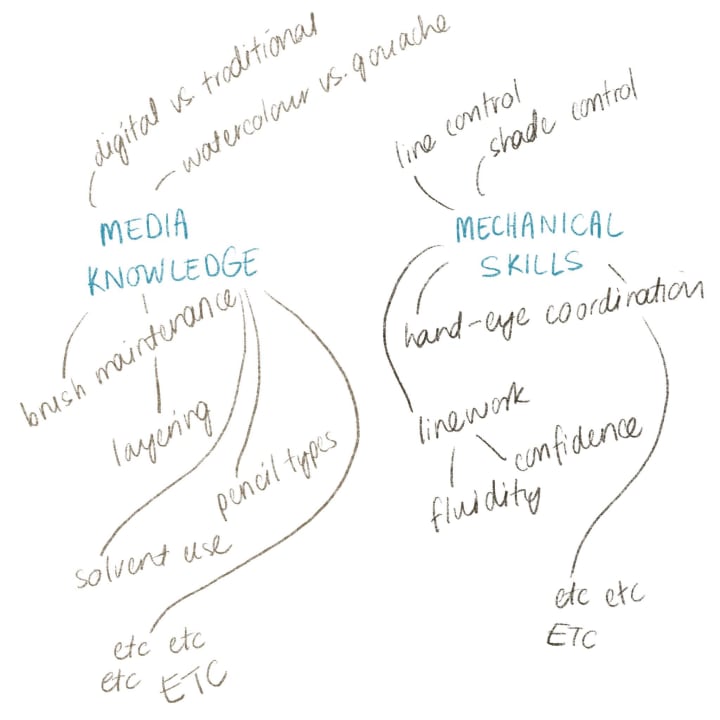 digital vs. traditional
watercolour vs. gouache
MEDIA
KNOWLEDGE
brush maintenance
layering
pencil types
solvent use
etc etc
etc ETC
line control
shade control
MECHANICAL
SKILLS
hand-eye coordination
linework
confidence
fluidity
etc etc
ETC